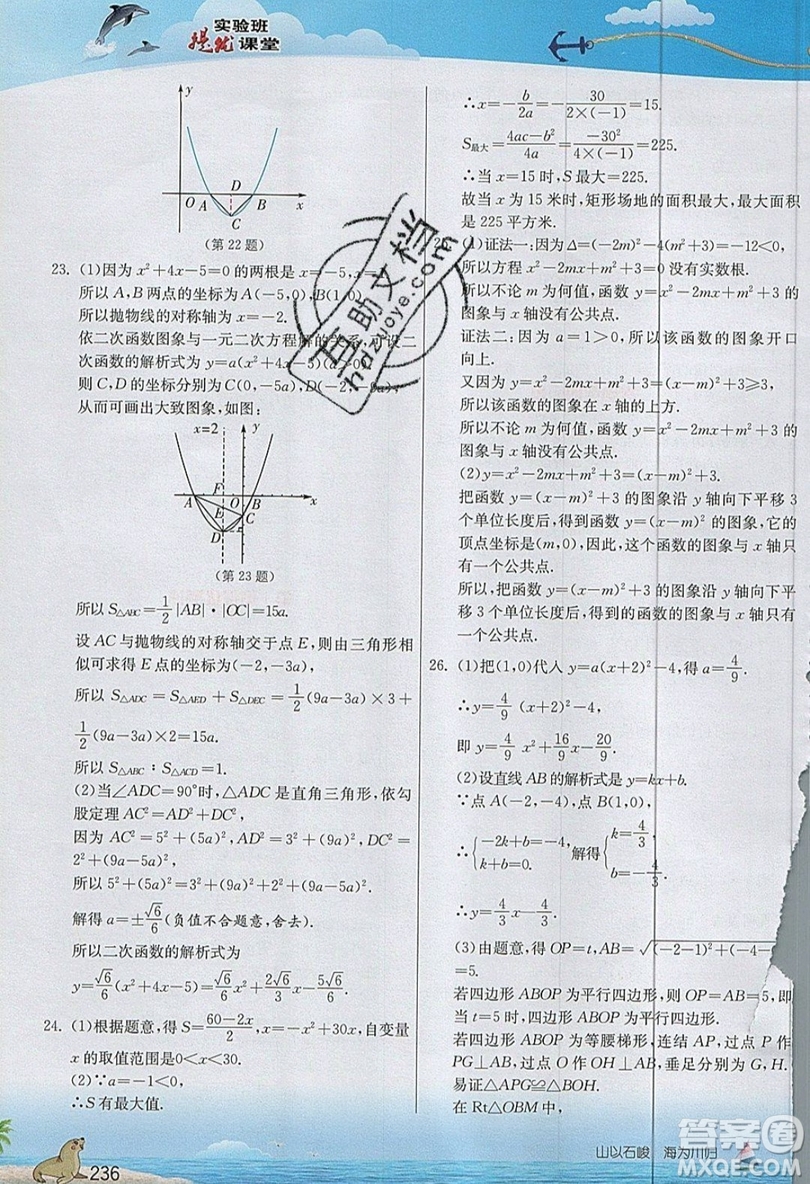 实验班
提优课堂
y
D
O A B x
C
(第22题)
23. (1)因为 x²+4x-5=0 的两根是 x=-5,x=
所以 A,B 两点的坐标为 A(-5,0),B(1,0)
所以抛物线的对称轴为 x=-2.
依二次函数图象与一元二次方程解的关系,可设二
次函数的解析式为 y=a(x²+4x-5)(a>0)
则 C,D 的坐标分别为 C(0,-5a),D(-2,-9a),
从而可画出大致图象,如图:
x=2 y
F
A O B x
E C
D
(第23题)
所以 S△ABC=1/2|AB|·|OC|=15a.
设 AC 与抛物线的对称轴交于点 E,则由三角形相
似可求得 E 点的坐标为(-2,-3a),
所以 S△ADC=S△AED+S△DEC=1/2(9a-3a)×3+
1/2(9a-3a)×2=15a.
所以 S△ABC:S△ACD=1.
(2)当∠ADC=90°时,△ADC 是直角三角形,依勾
股定理 AC²=AD²+DC²,
因为 AC²=5²+(5a)²,AD²=3²+(9a)²,DC²=
2²+(4a)²,
所以 5²+(5a)²=3²+(9a)²+2²+(4a)²,
解得 a=±√6/6(负值不合题意,舍去).
所以二次函数的解析式为
y=√6/6(x²+4x-5)=√6/6x²+2√6/3x-5√6/6.
24. (1)根据题意,得 S=60-2x/2,x=-x²+30x,自变量
x 的取值范围是0<x<30.
(2)∵a=-1<0,
∴S 有最大值.
∴x=-b/2a=-30/2×(-1)=15.
S最大=4ac-b²/4a=-30²/4×(-1)=225.
∴当 x=15 时,S 最大=225.
故当 x 为 15 米时,矩形场地的面积最大,最大面积
是 225 平方米.
(1)证法一:因为 Δ=(-2m)²-4(m²+3)=-12<0,
所以方程 x²-2mx+m²+3=0 没有实数根.
所以不论 m 为何值,函数 y=x²-2mx+m²+3 的
图象与 x 轴没有公共点.
证法二:因为 a=1>0,所以该函数的图象开口
向上.
又因为 y=x²-2mx+m²+3=(x-m)²+3≥3,
所以该函数的图象在 x 轴的上方.
所以不论 m 为何值,函数 y=x²-2mx+m²+3 的
图象与 x 轴没有公共点.
(2)y=x²-2mx+m²+3=(x-m)²+3.
把函数 y=(x-m)²+3 的图象沿 y 轴向下平移 3
个单位长度后,得到函数 y=(x-m)² 的图象,它的
顶点坐标是(m,0),因此,这个函数的图象与 x 轴只
有一个公共点.
所以,把函数 y=x²-2mx+m²+3 的图象沿 y 轴向
下平移 3 个单位长度后,得到的函数的图象与 x 轴
只有一个公共点.
26. (1)把(1,0)代入 y=a(x+2)²-4,得 a=4/9.
∴y=4/9(x+2)²-4,
即 y=4/9x²+16/9x-20/9.
(2)设直线 AB 的解析式是 y=kx+b.
∵点 A(-2,-4),点 B(1,0),
∴{-2k+b=-4, k+b=0. 解得{k=4/3, b=-4/3.
∴y=4/3x-4/3.
(3)由题意,得 OP=t,AB=√(-2-1)²+(-4-
=5.
若四边形 ABOP 为平行四边形,则 OP=AB=5,即
当 t=5 时,四边形 ABOP 为平行四边形.
若四边形 ABOP 为等腰梯形,连结 AP,过点 P 作
PG⊥AB,过点 O 作 OH⊥AB,垂足分别为 G,H.
易证△APG≌△BOH.
在 Rt△OBM 中,
互助文档
hdzuoye.com
236
山以石峻 海为川归
答案圈
MXQE.COM